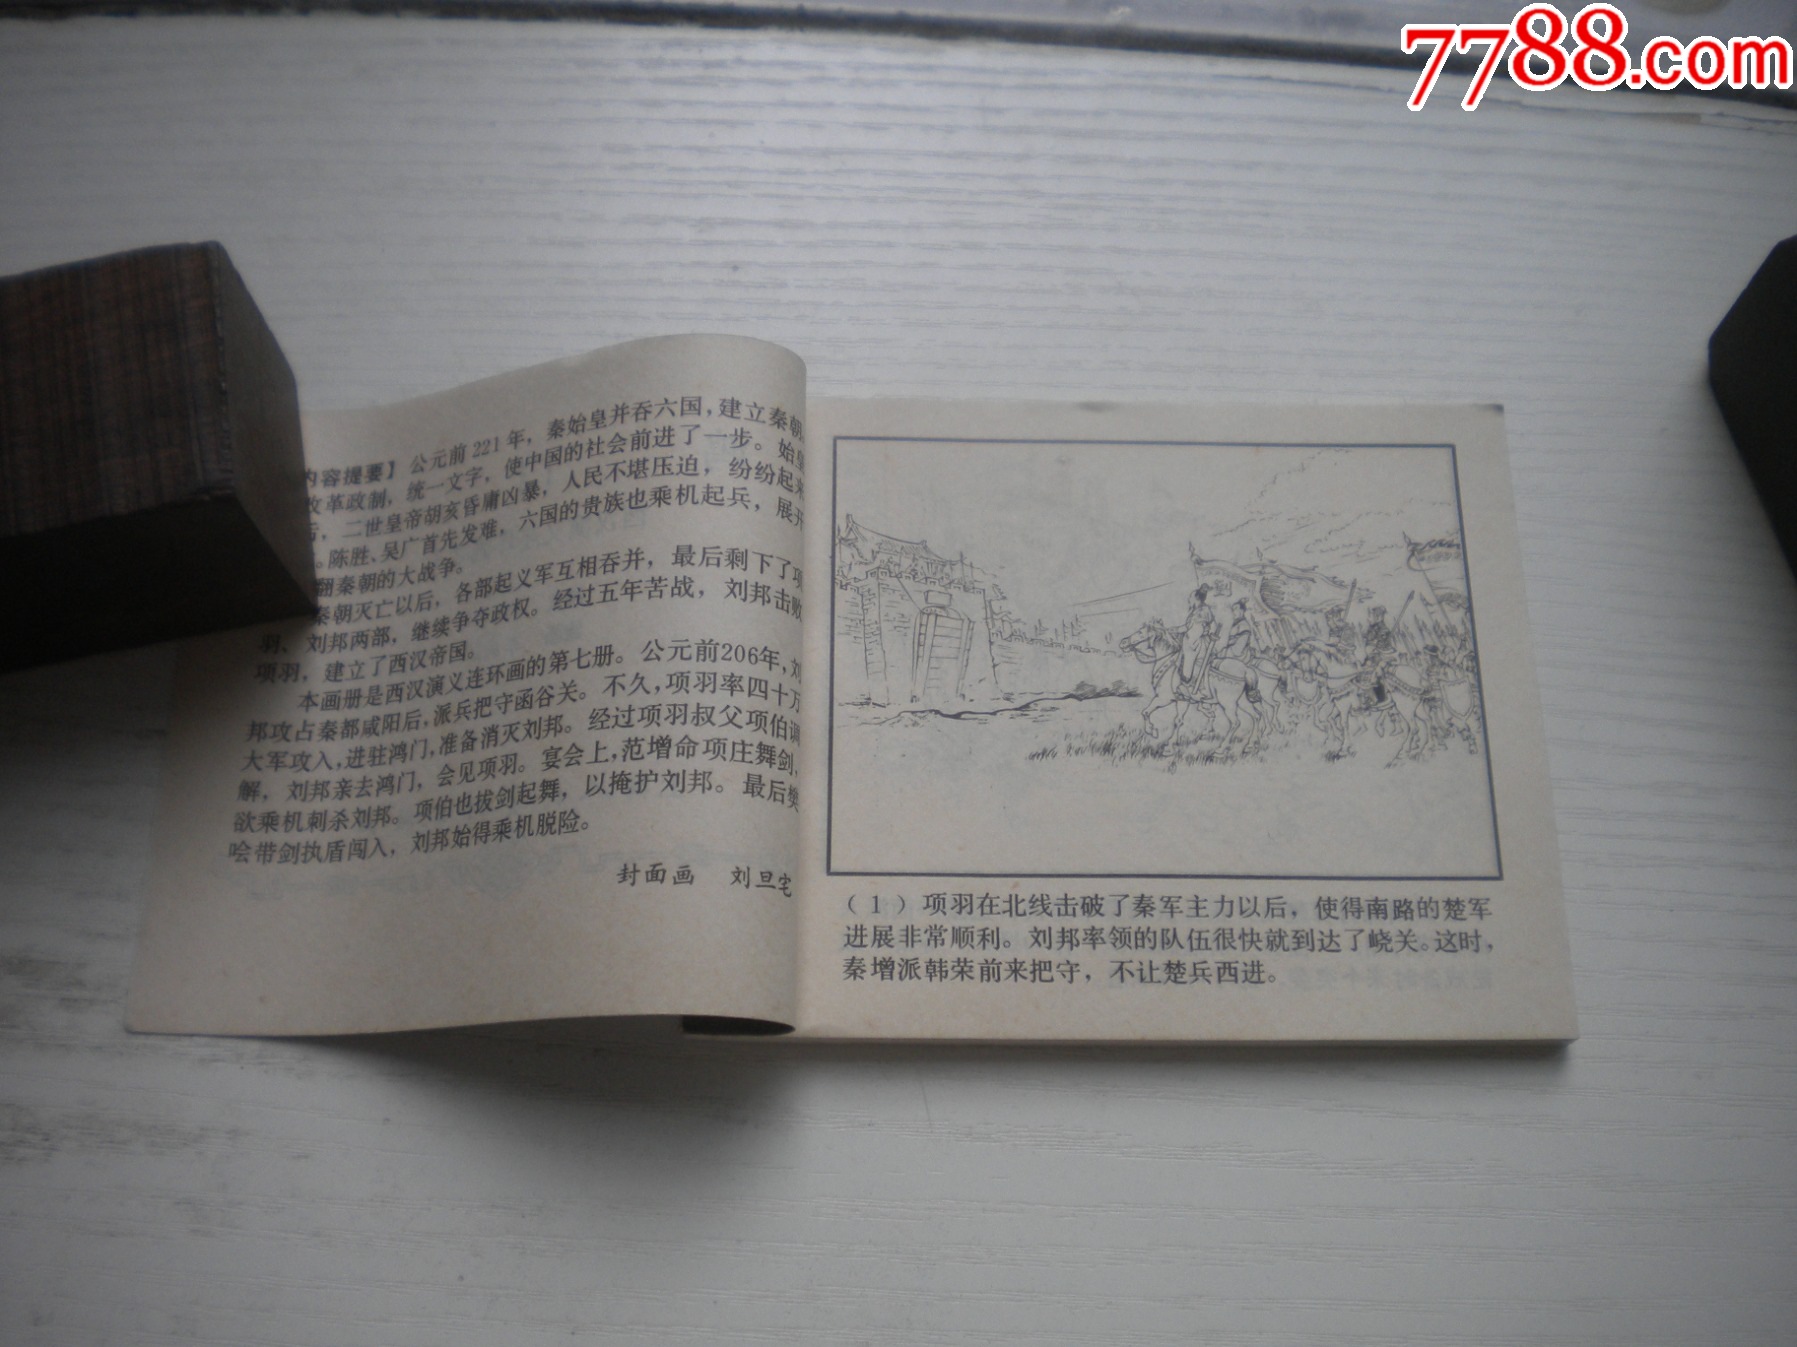 7788.com
内容提要】 公元前221年，秦始皇并吞六国，建立秦朝
改革政制，统一文字，使中国的社会前进了一步。始皇
后，二世皇帝胡亥昏庸凶暴，人民不堪压迫，纷纷起来
。陈胜、吴广首先发难，六国的贵族也乘机起兵，展开
翻秦朝的大战争。
秦朝灭亡以后，各部起义军互相吞并，最后剩下了项
羽、刘邦两部，继续争夺政权。经过五年苦战，刘邦击败
项羽，建立了西汉帝国。
本画册是西汉演义连环画的第七册。公元前206年，刘
邦攻占秦都咸阳后，派兵把守函谷关。不久，项羽率四十万
大军攻入，进驻鸿门，准备消灭刘邦。经过项羽叔父项伯调
解，刘邦亲去鸿门，会见项羽。宴会上，范增命项庄舞剑，
欲乘机刺杀刘邦。项伯也拔剑起舞，以掩护刘邦。最后樊
哙带剑执盾闯入，刘邦始得乘机脱险。
封面画 刘旦宅
（1）项羽在北线击破了秦军主力以后，使得南路的楚军
进展非常顺利。刘邦率领的队伍很快就到达了峣关。这时，
秦增派韩荣前来把守，不让楚兵西进。